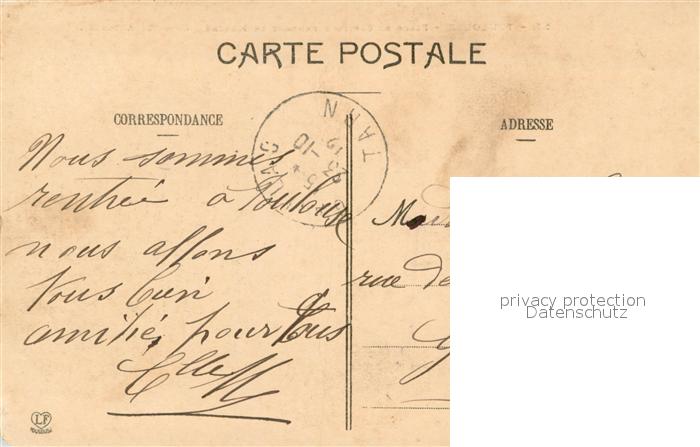 CARTE POSTALE
CORRESPONDANCE
ADRESSE
TARN
23-10
Nous sommes
rentrée a Toulouse
nous allons
tous bien
amitié, pour tous
rue de
privacy protection
Datenschutz
LF